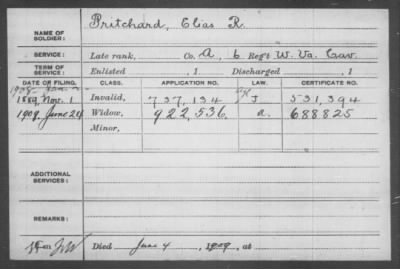 Pritchard, Elias R.
NAME OF SOLDIER:
SERVICE: Late rank, Co. A, 6 Reg't W. Va. Cav.
TERM OF SERVICE: Enlisted , 1 Discharged , 1
DATE OF FILING. CLASS. APPLICATION NO. LAW. CERTIFICATE NO.
1908
1889, Nov. 1 Invalid, 737,134 J 531,394
1909, June 24 Widow, 922,536 a. 688825
Minor,
ADDITIONAL SERVICES:
REMARKS:
Died June 4, 1909, at